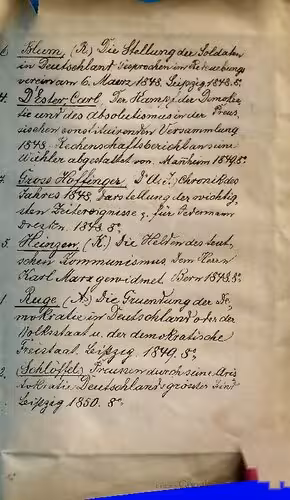 6. Blum, (R.) Die Stellung der Soldaten
in Deutschland besprochen im Redeuebungs
verein am 6. Maerz 1848. Leipzig 1848. 8º.
4. D'Ester, Carl, Der Kampf der Demokra-
tie und des Absolutismus in der Preus-
sischen constituirenden Versammlung
1848. Rechenschaftsbericht an seine
Waehler abgestattet von. Manheim 1849. 8º.
7. Gross Hoffinger, Chronik des
Jahres 1848. Darstellung der wichtig-
sten Zeitereignisse z. für Jedermann
Dresden. 1848. 8º.
5. Heinzen, (K.) Die Helden des teut-
schen Kommunismus. Dem Herrn
Karl Marx gewidmet. Bern 1848. 8º.
1 Ruge, (A.) Die Gruendung der De-
mokratie in Deutschland oder der
Volksstaat u. der demokratische
Freistaat. Leipzig. 1849. 8º.
2. (Schlöffel) Preussen durch seine Aris
tokratie Deutschlands grösster Feind
Leipzig 1850. 8º.